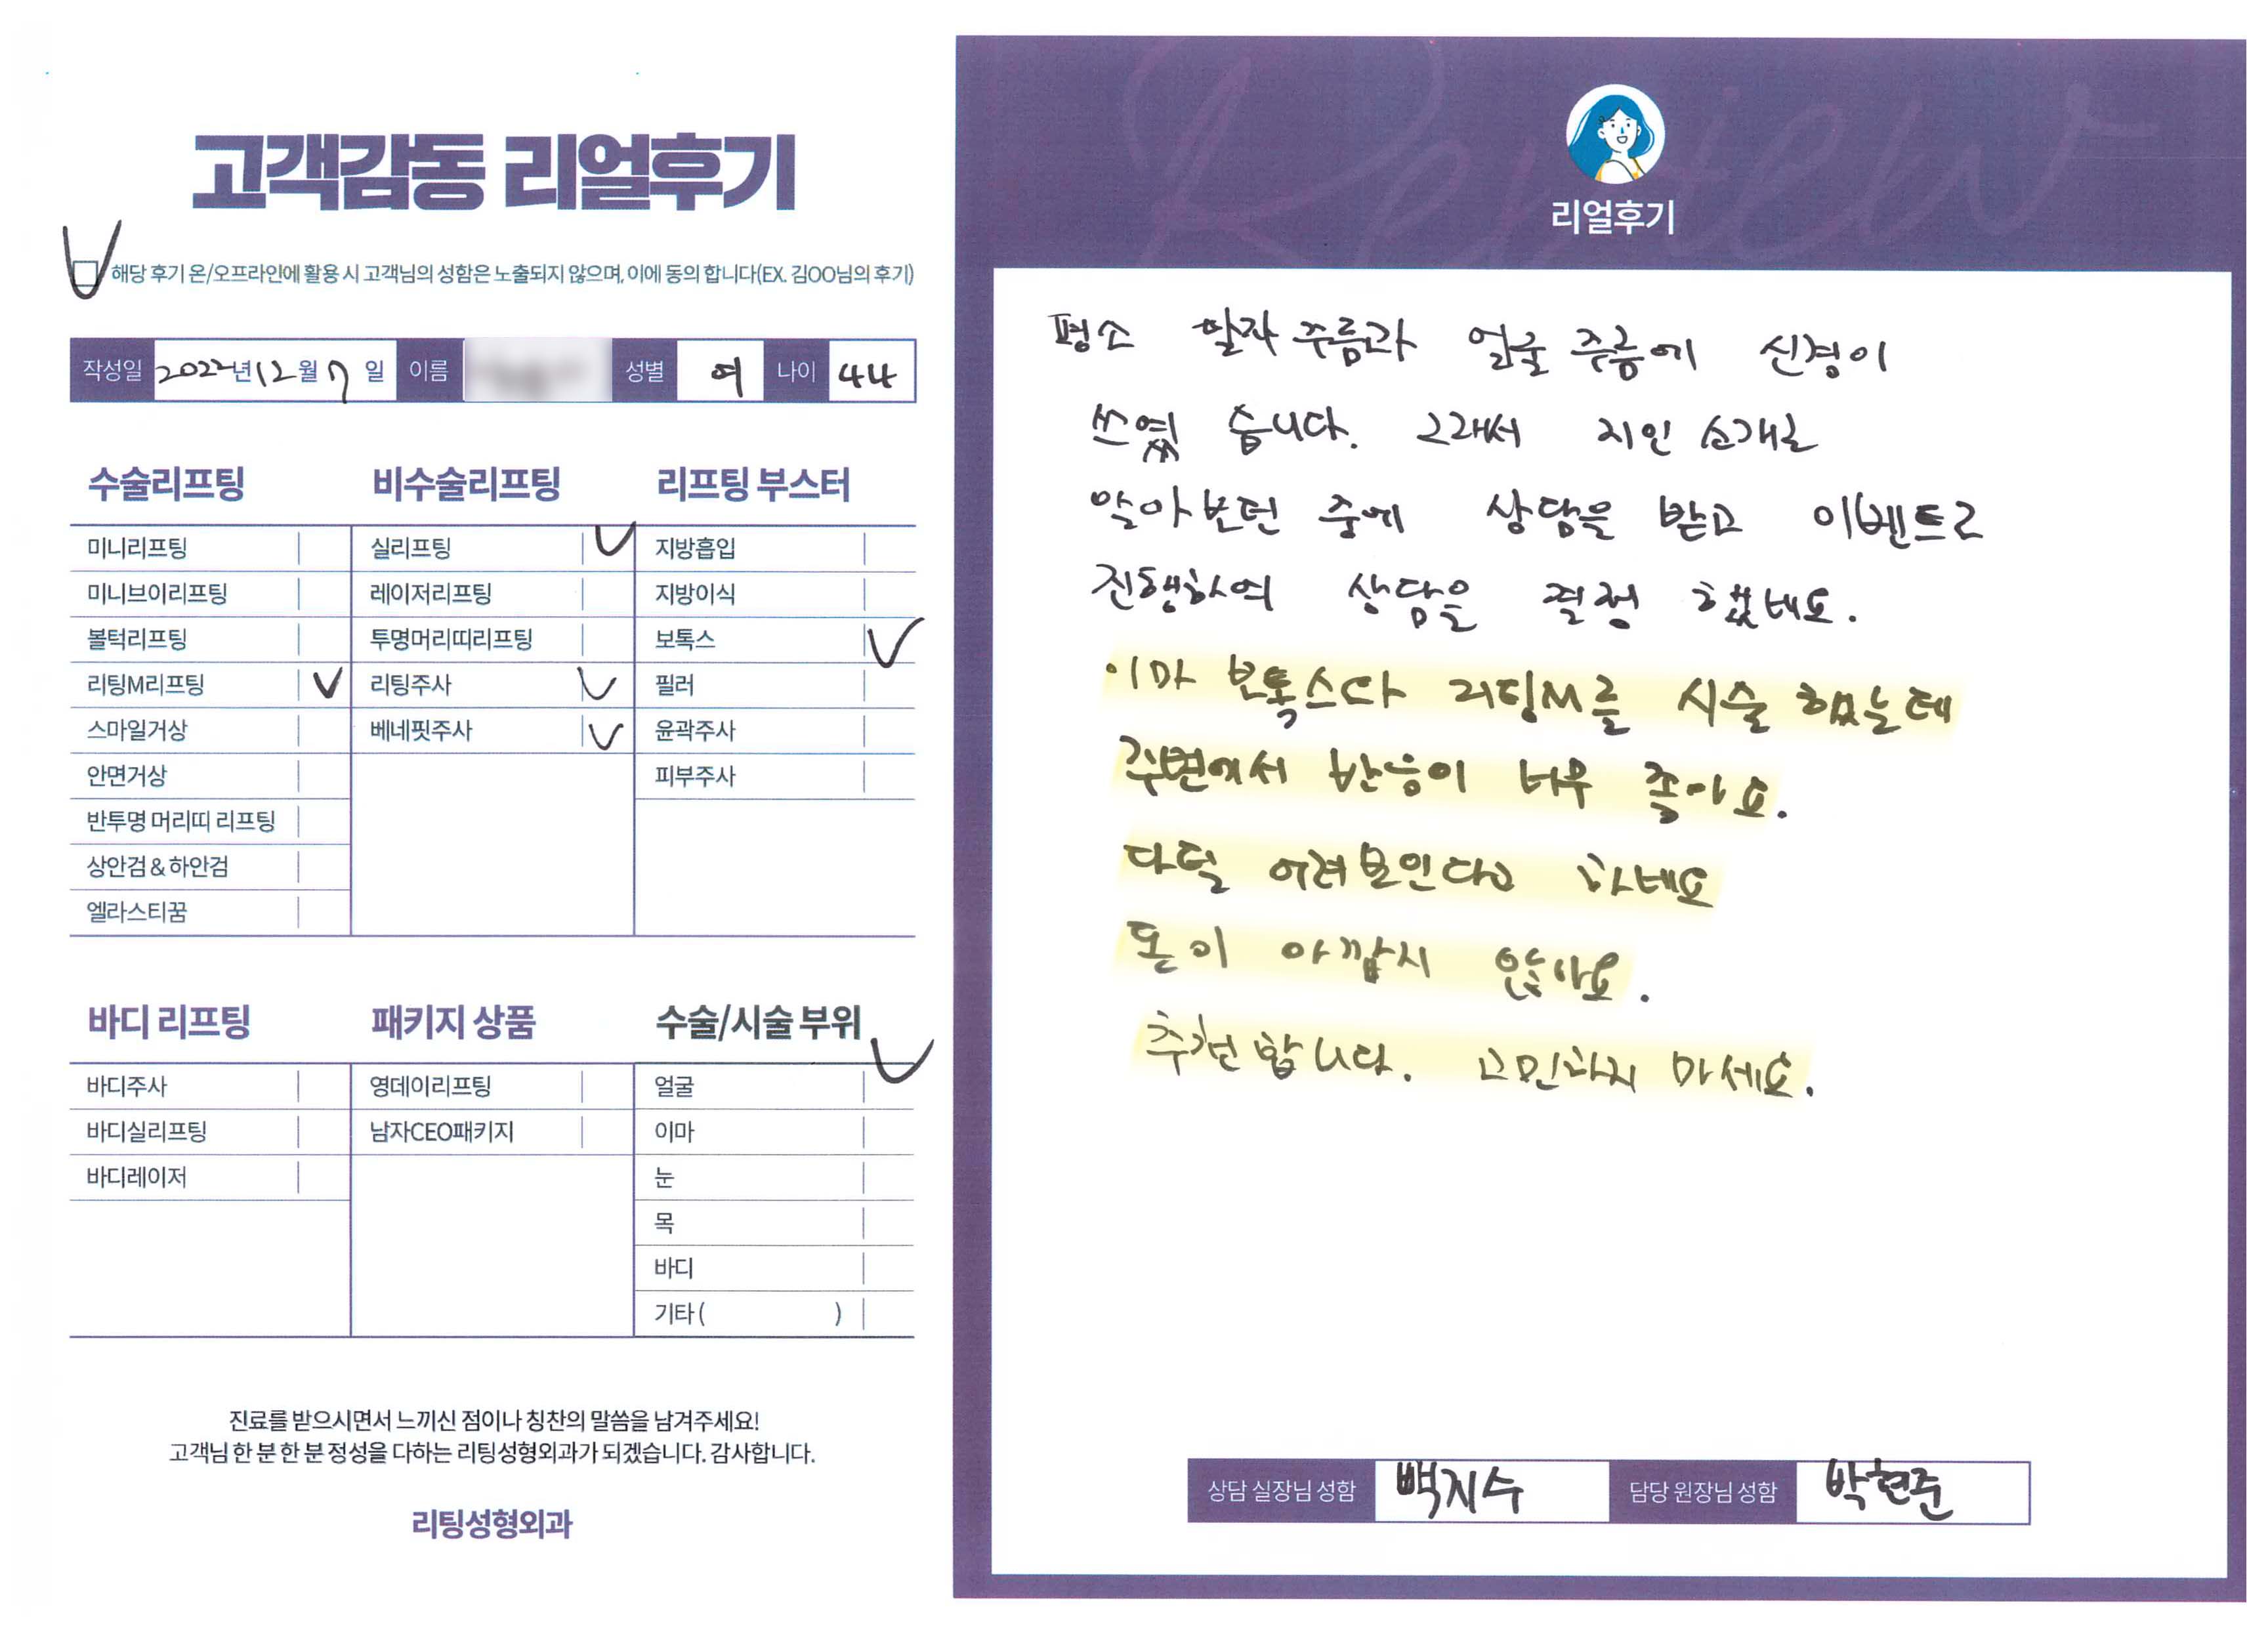 고객감동 리얼후기
해당 후기 온/오프라인에 활용 시 고객님의 성함은 노출되지 않으며, 이에 동의 합니다(EX. 김OO님의 후기)
작성일 2022년 12월 7일 이름 성별 여 나이 44
수술리프팅
미니리프팅
미니브이리프팅
볼턱리프팅
리팅M리프팅
스마일거상
안면거상
반투명 머리띠 리프팅
상안검 & 하안검
엘라스티꿈
비수술리프팅
실리프팅
레이저리프팅
투명머리띠리프팅
리팅주사
베네핏주사
리프팅 부스터
지방흡입
지방이식
보톡스
필러
윤곽주사
피부주사
바디 리프팅
바디주사
바디실리프팅
바디레이저
패키지 상품
영데이리프팅
남자CEO패키지
수술/시술 부위
얼굴
이마
눈
목
바디
기타 ( )
진료를 받으시면서 느끼신 점이나 칭찬의 말씀을 남겨주세요!
고객님 한 분 한 분 정성을 다하는 리팅성형외과가 되겠습니다. 감사합니다.
리팅성형외과
Review
리얼후기
평소 팔자 주름과 얼굴 주름에 신경이
쓰였 습니다. 그래서 지인 소개로
알아보던 중에 상담을 받고 이벤트로
진행하여 상담을 결정 했네요.
이마 보톡스다 리팅M를 시술 했는데
주변에서 반응이 너무 좋아요.
다덜 어려보인다고 하네요
돈이 아깝지 않아요.
추천합니다. 고민하지 마세요.
상담 실장님 성함 백지수 담당 원장님 성함 박현준